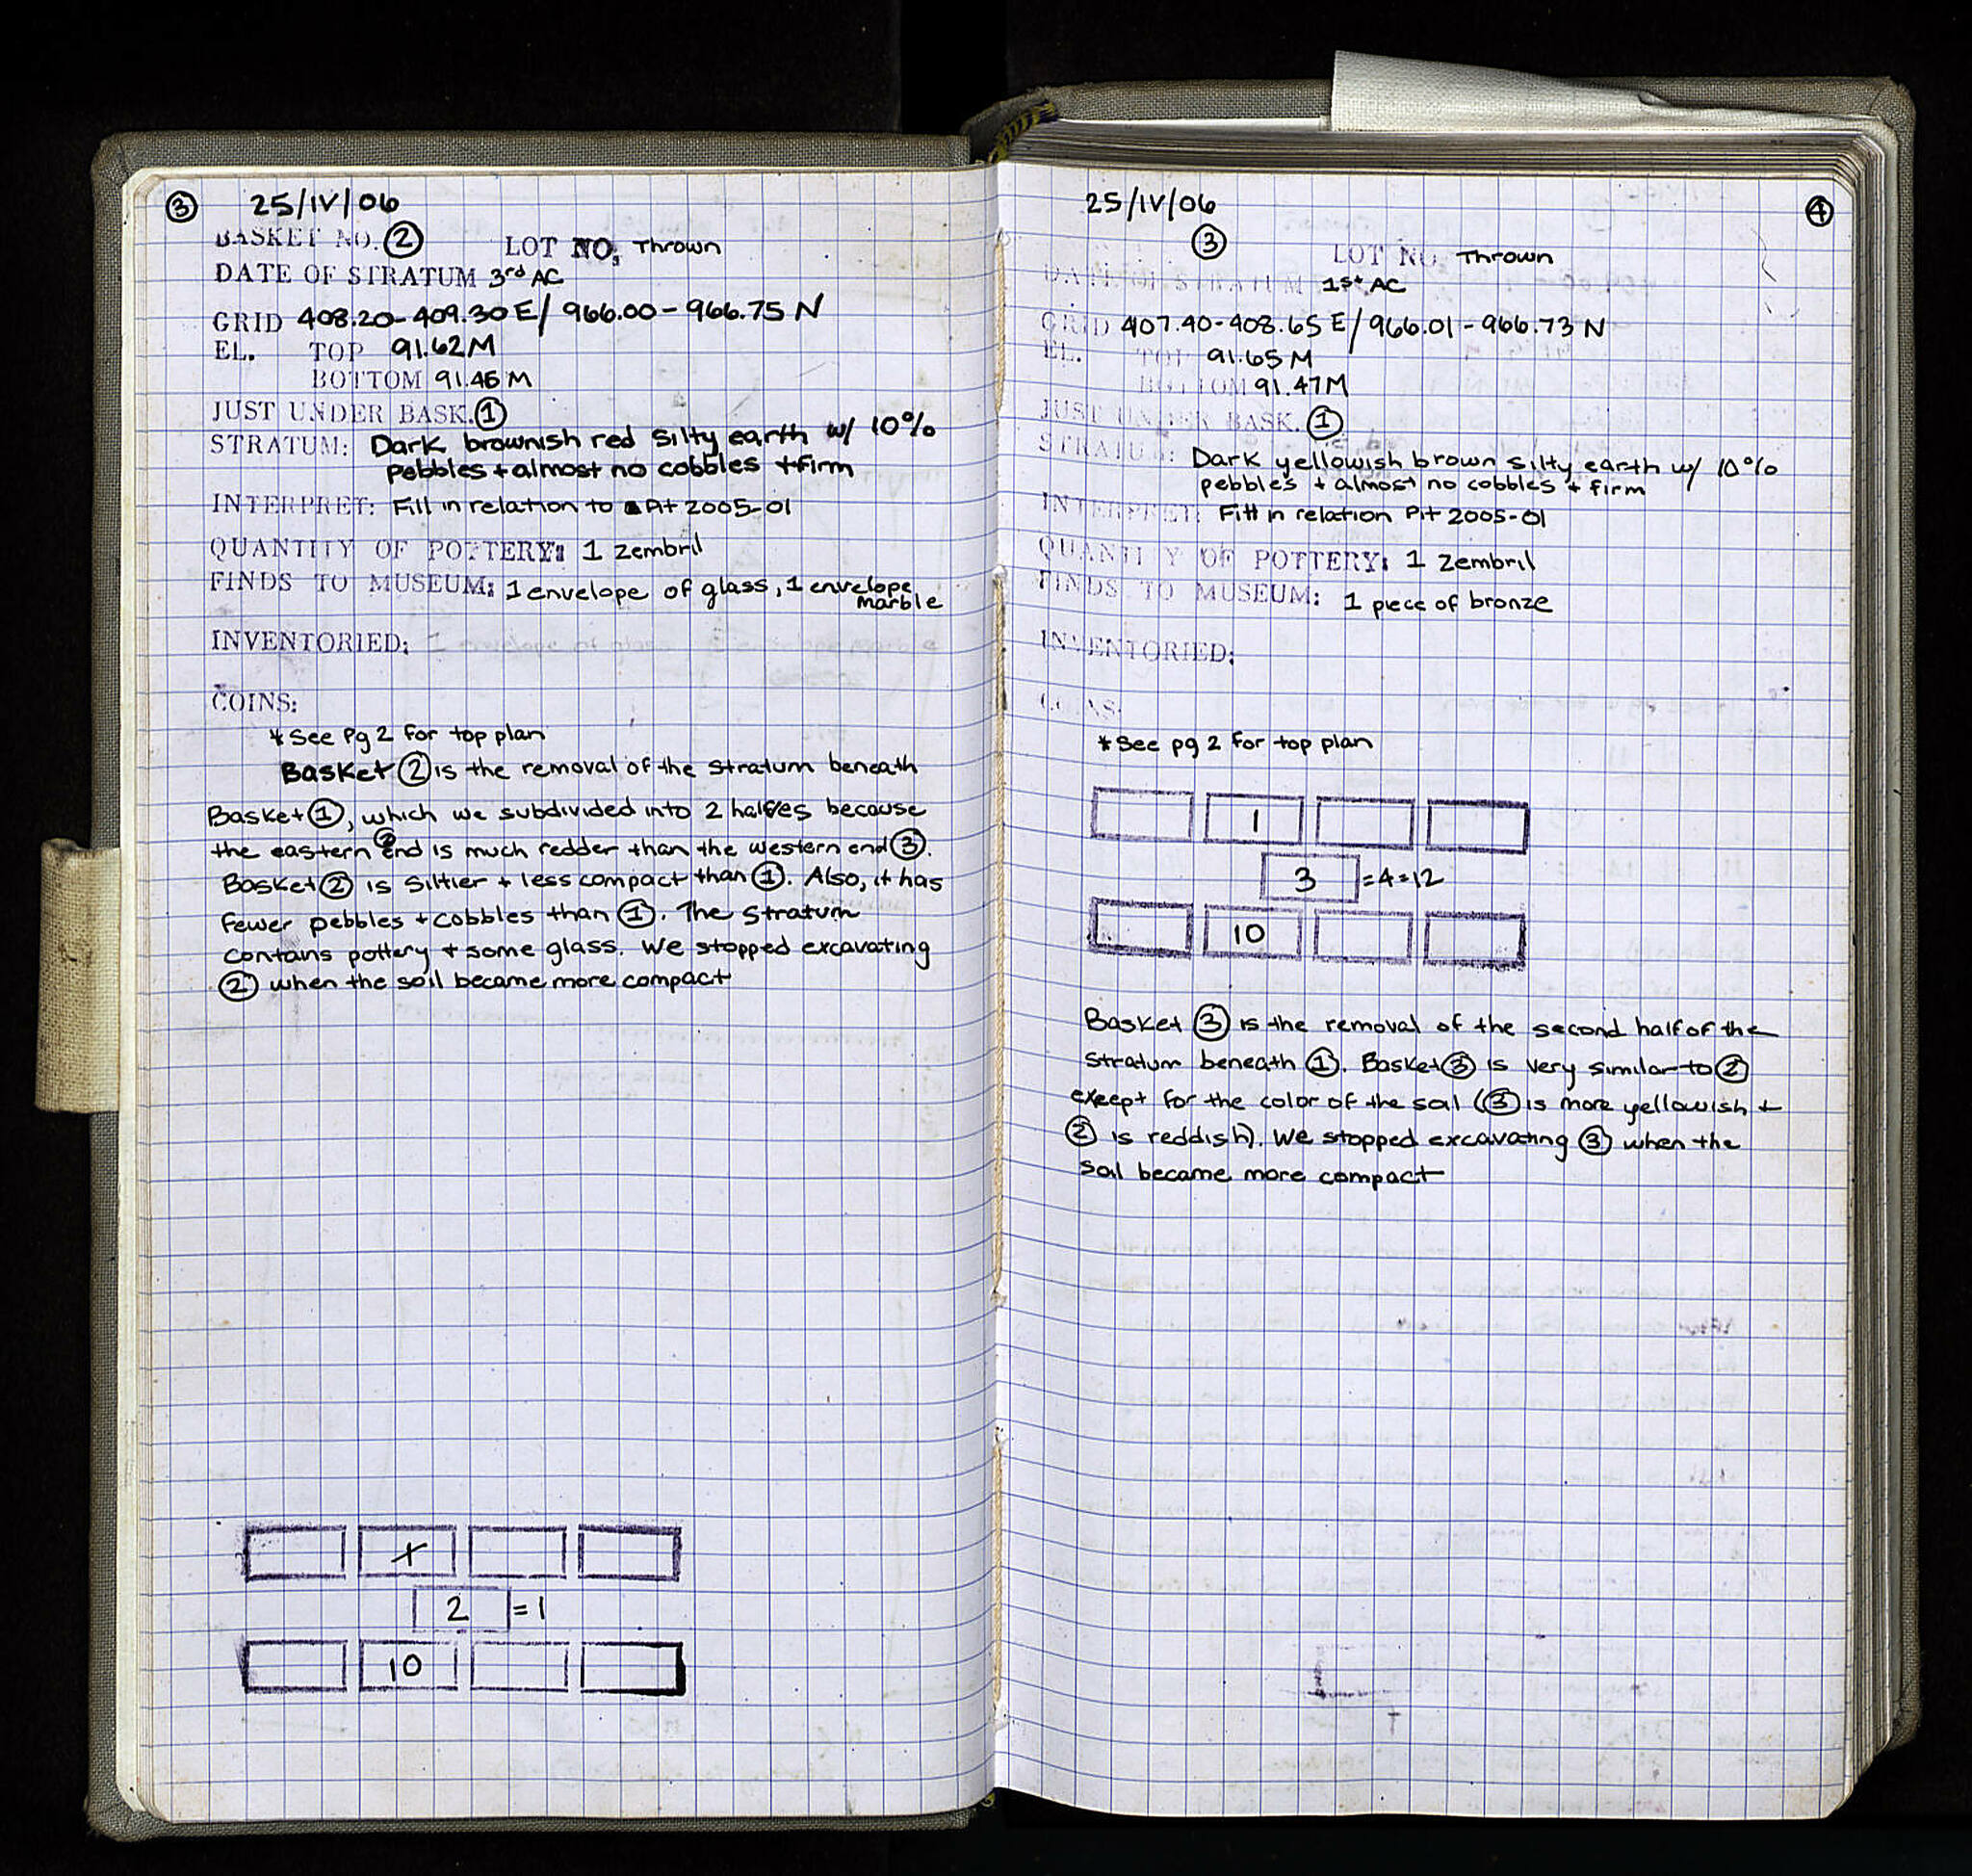 ③ 25/IV/06
BASKET NO. ② LOT NO. Thrown
DATE OF STRATUM 3rd AC
GRID 408.20-409.30 E/ 966.00-966.75 N
EL. TOP 91.62M
BOTTOM 91.46M
JUST UNDER BASK. ①
STRATUM: Dark brownish red silty earth w/ 10%
pebbles + almost no cobbles + firm
INTERPRET: Fill in relation to Pit 2005-01
QUANTITY OF POTTERY: 1 zembril
FINDS TO MUSEUM: 1 envelope of glass, 1 envelope
marble
INVENTORIED:
COINS:
* See pg 2 for top plan
Basket ② is the removal of the stratum beneath
Basket ①, which we subdivided into 2 halves because
the eastern ② end is much redder than the western end ③.
Basket ② is siltier + less compact than ①. Also, it has
fewer pebbles + cobbles than ①. The stratum
contains pottery + some glass. We stopped excavating
② when the soil became more compact
+
2 = 1
10
25/IV/06 ④
③ LOT NO. Thrown
DATE OF STRATUM 1st AC
GRID 407.40-408.65 E/ 966.01-966.73 N
EL. TOP 91.65 M
BOTTOM 91.47M
JUST UNDER BASK. ①
STRATUM: Dark yellowish brown silty earth w/ 10%
pebbles + almost no cobbles + firm
INTERPRET: Fill in relation Pit 2005-01
QUANTITY OF POTTERY: 1 zembril
FINDS TO MUSEUM: 1 piece of bronze
INVENTORIED:
COINS:
* See pg 2 for top plan
1
3 =4=12
10
Basket ③ is the removal of the second half of the
stratum beneath ①. Basket ③ is very similar to ②
except for the color of the soil (③ is more yellowish +
② is reddish). We stopped excavating ③ when the
soil became more compact